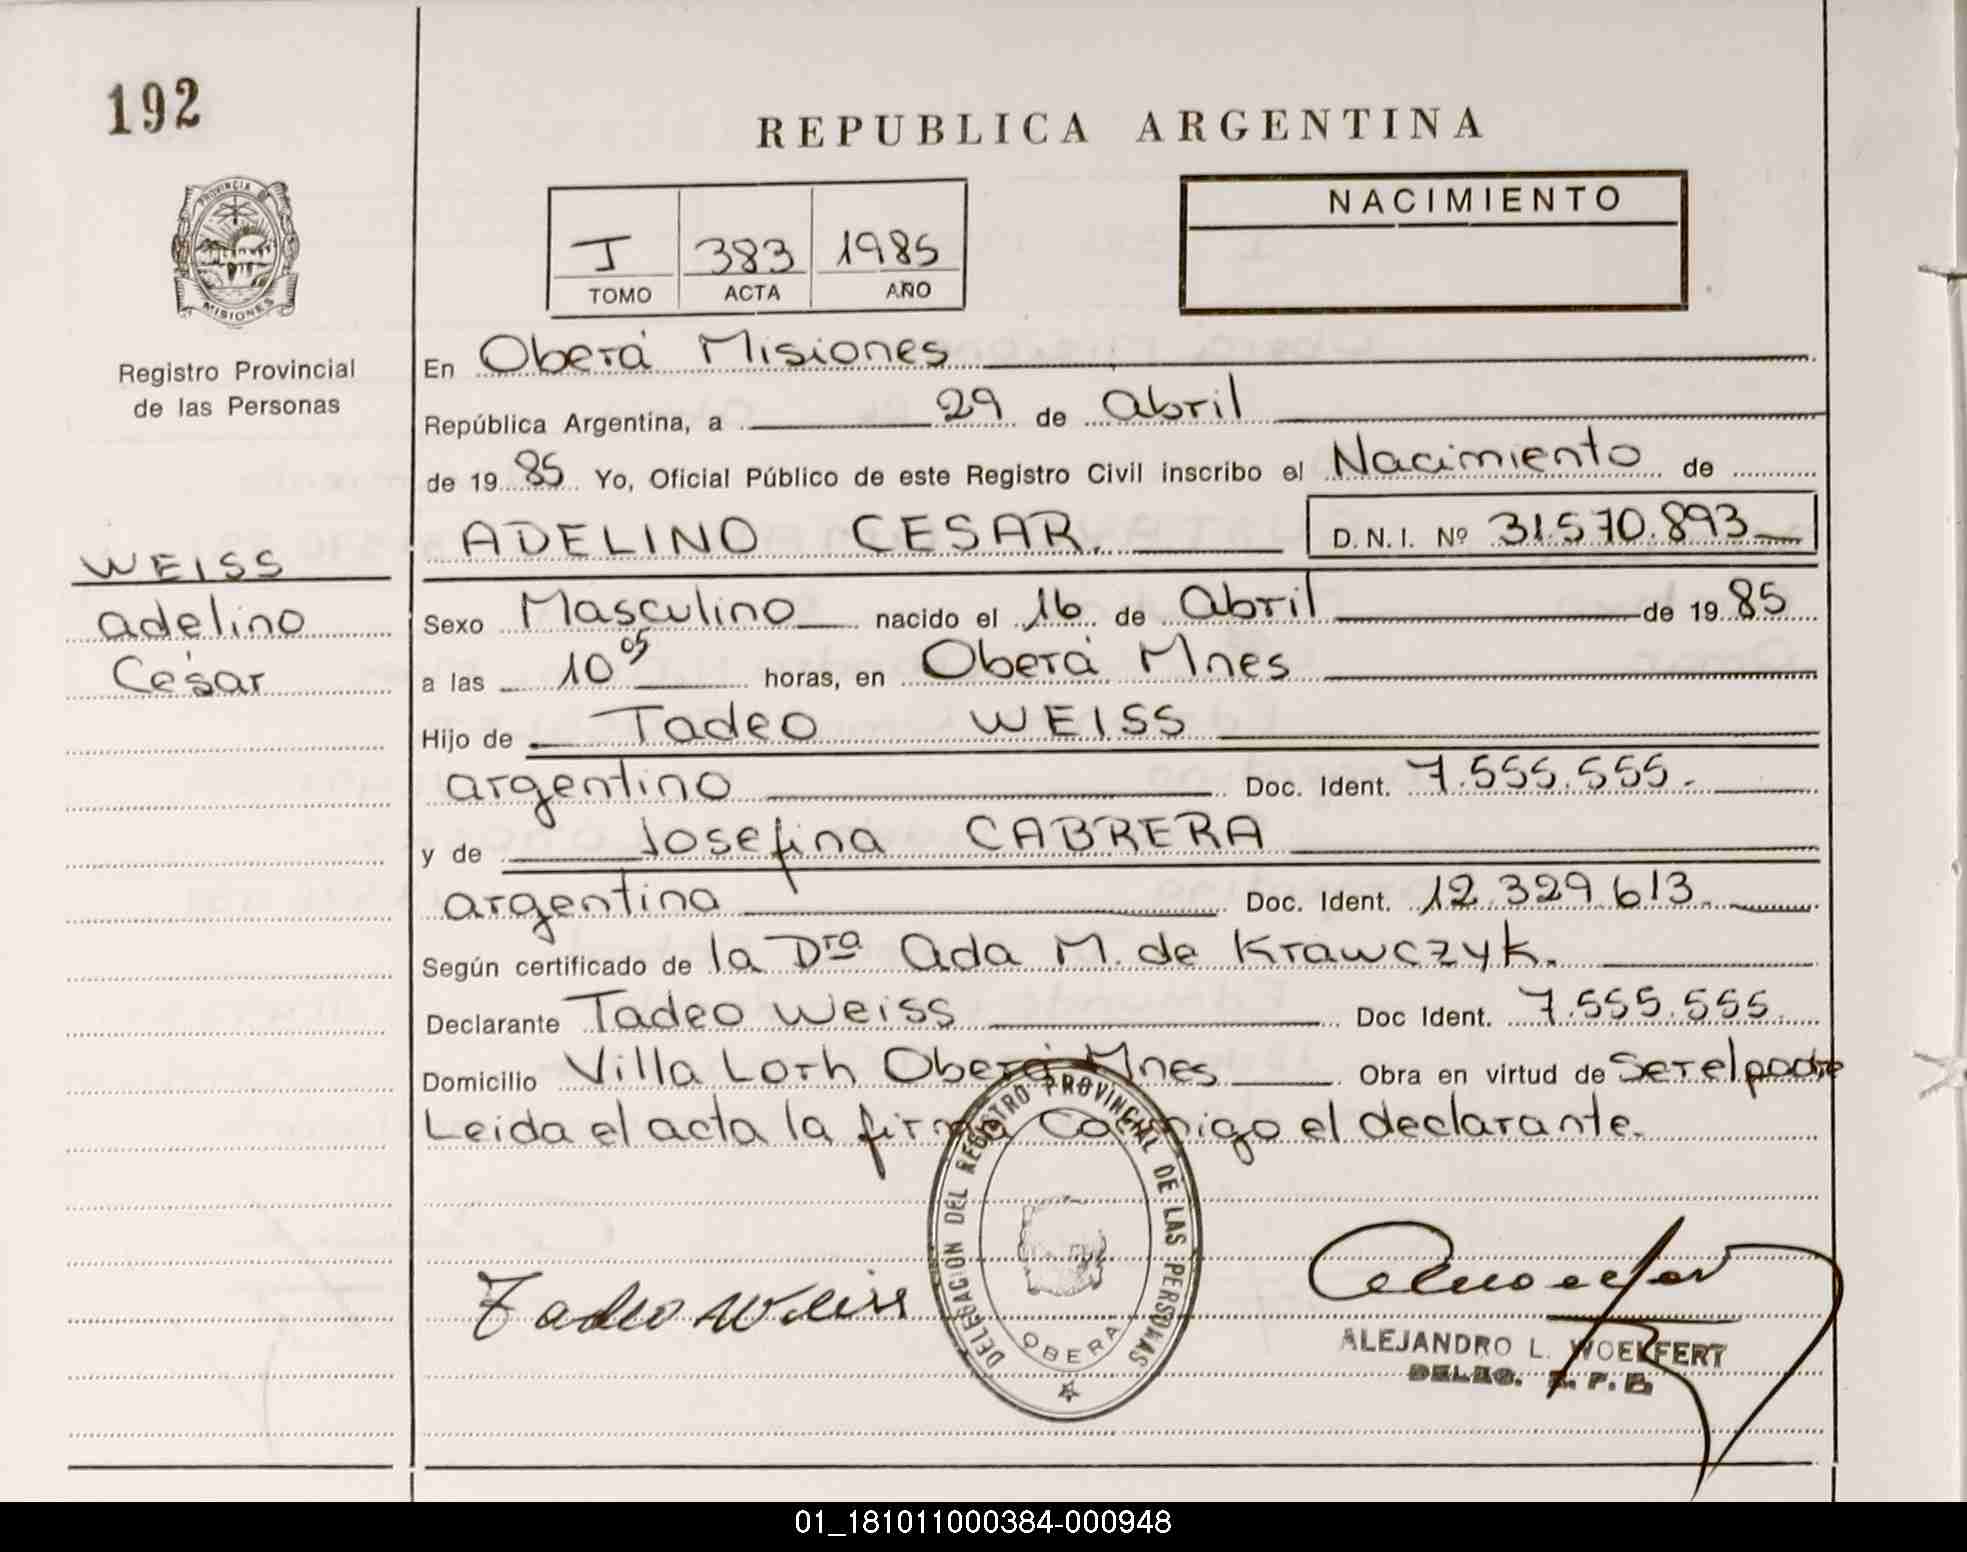 192
REPUBLICA ARGENTINA
PROVINCIA DE
MISIONES
NACIMIENTO
I 383 1985
TOMO ACTA AÑO
Registro Provincial
de las Personas
En Oberá Misiones
República Argentina, a 29 de Abril
de 1985 Yo, Oficial Público de este Registro Civil inscribo el Nacimiento de
ADELINO CESAR. D.N.I. Nº 31.570.893
WEISS
Adelino
César
Sexo Masculino nacido el 16 de Abril de 1985
a las 10 05 horas, en Oberá Mnes
Hijo de Tadeo WEISS
argentino Doc. Ident. 7.555.555.
y de Josefina CABRERA
argentina Doc. Ident. 12.329.613.
Según certificado de la Dra Ada M. de Krawczyk.
Declarante Tadeo Weiss Doc Ident. 7.555.555
Domicilio Villa Loth Oberá Mnes Obra en virtud de Ser el padre
Leida el acta la firma Conmigo el declarante.
DELEGACIÓN DEL REGISTRO PROVINCIAL DE LAS PERSONAS
OBERA
Tadeo Weiss
ALEJANDRO L. WOELFERT
DELEG. R. P. P.
01_181011000384-000948